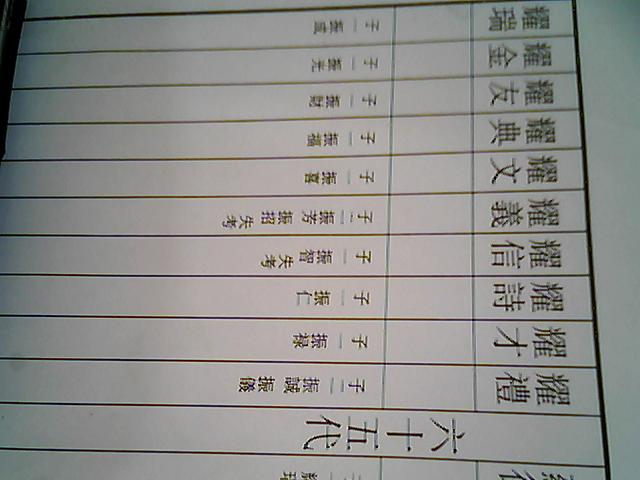 六十五代
耀禮 子二 振誠 振儀
耀才 子一 振禄
耀詩 子一 振仁
耀信 子一 振智失考
耀義 子二 振芳 振招失考
耀文 子一 振喜
耀典 子一 振福
耀友 子一 振財
耀金 子一 振光
耀瑞 子一 振盛